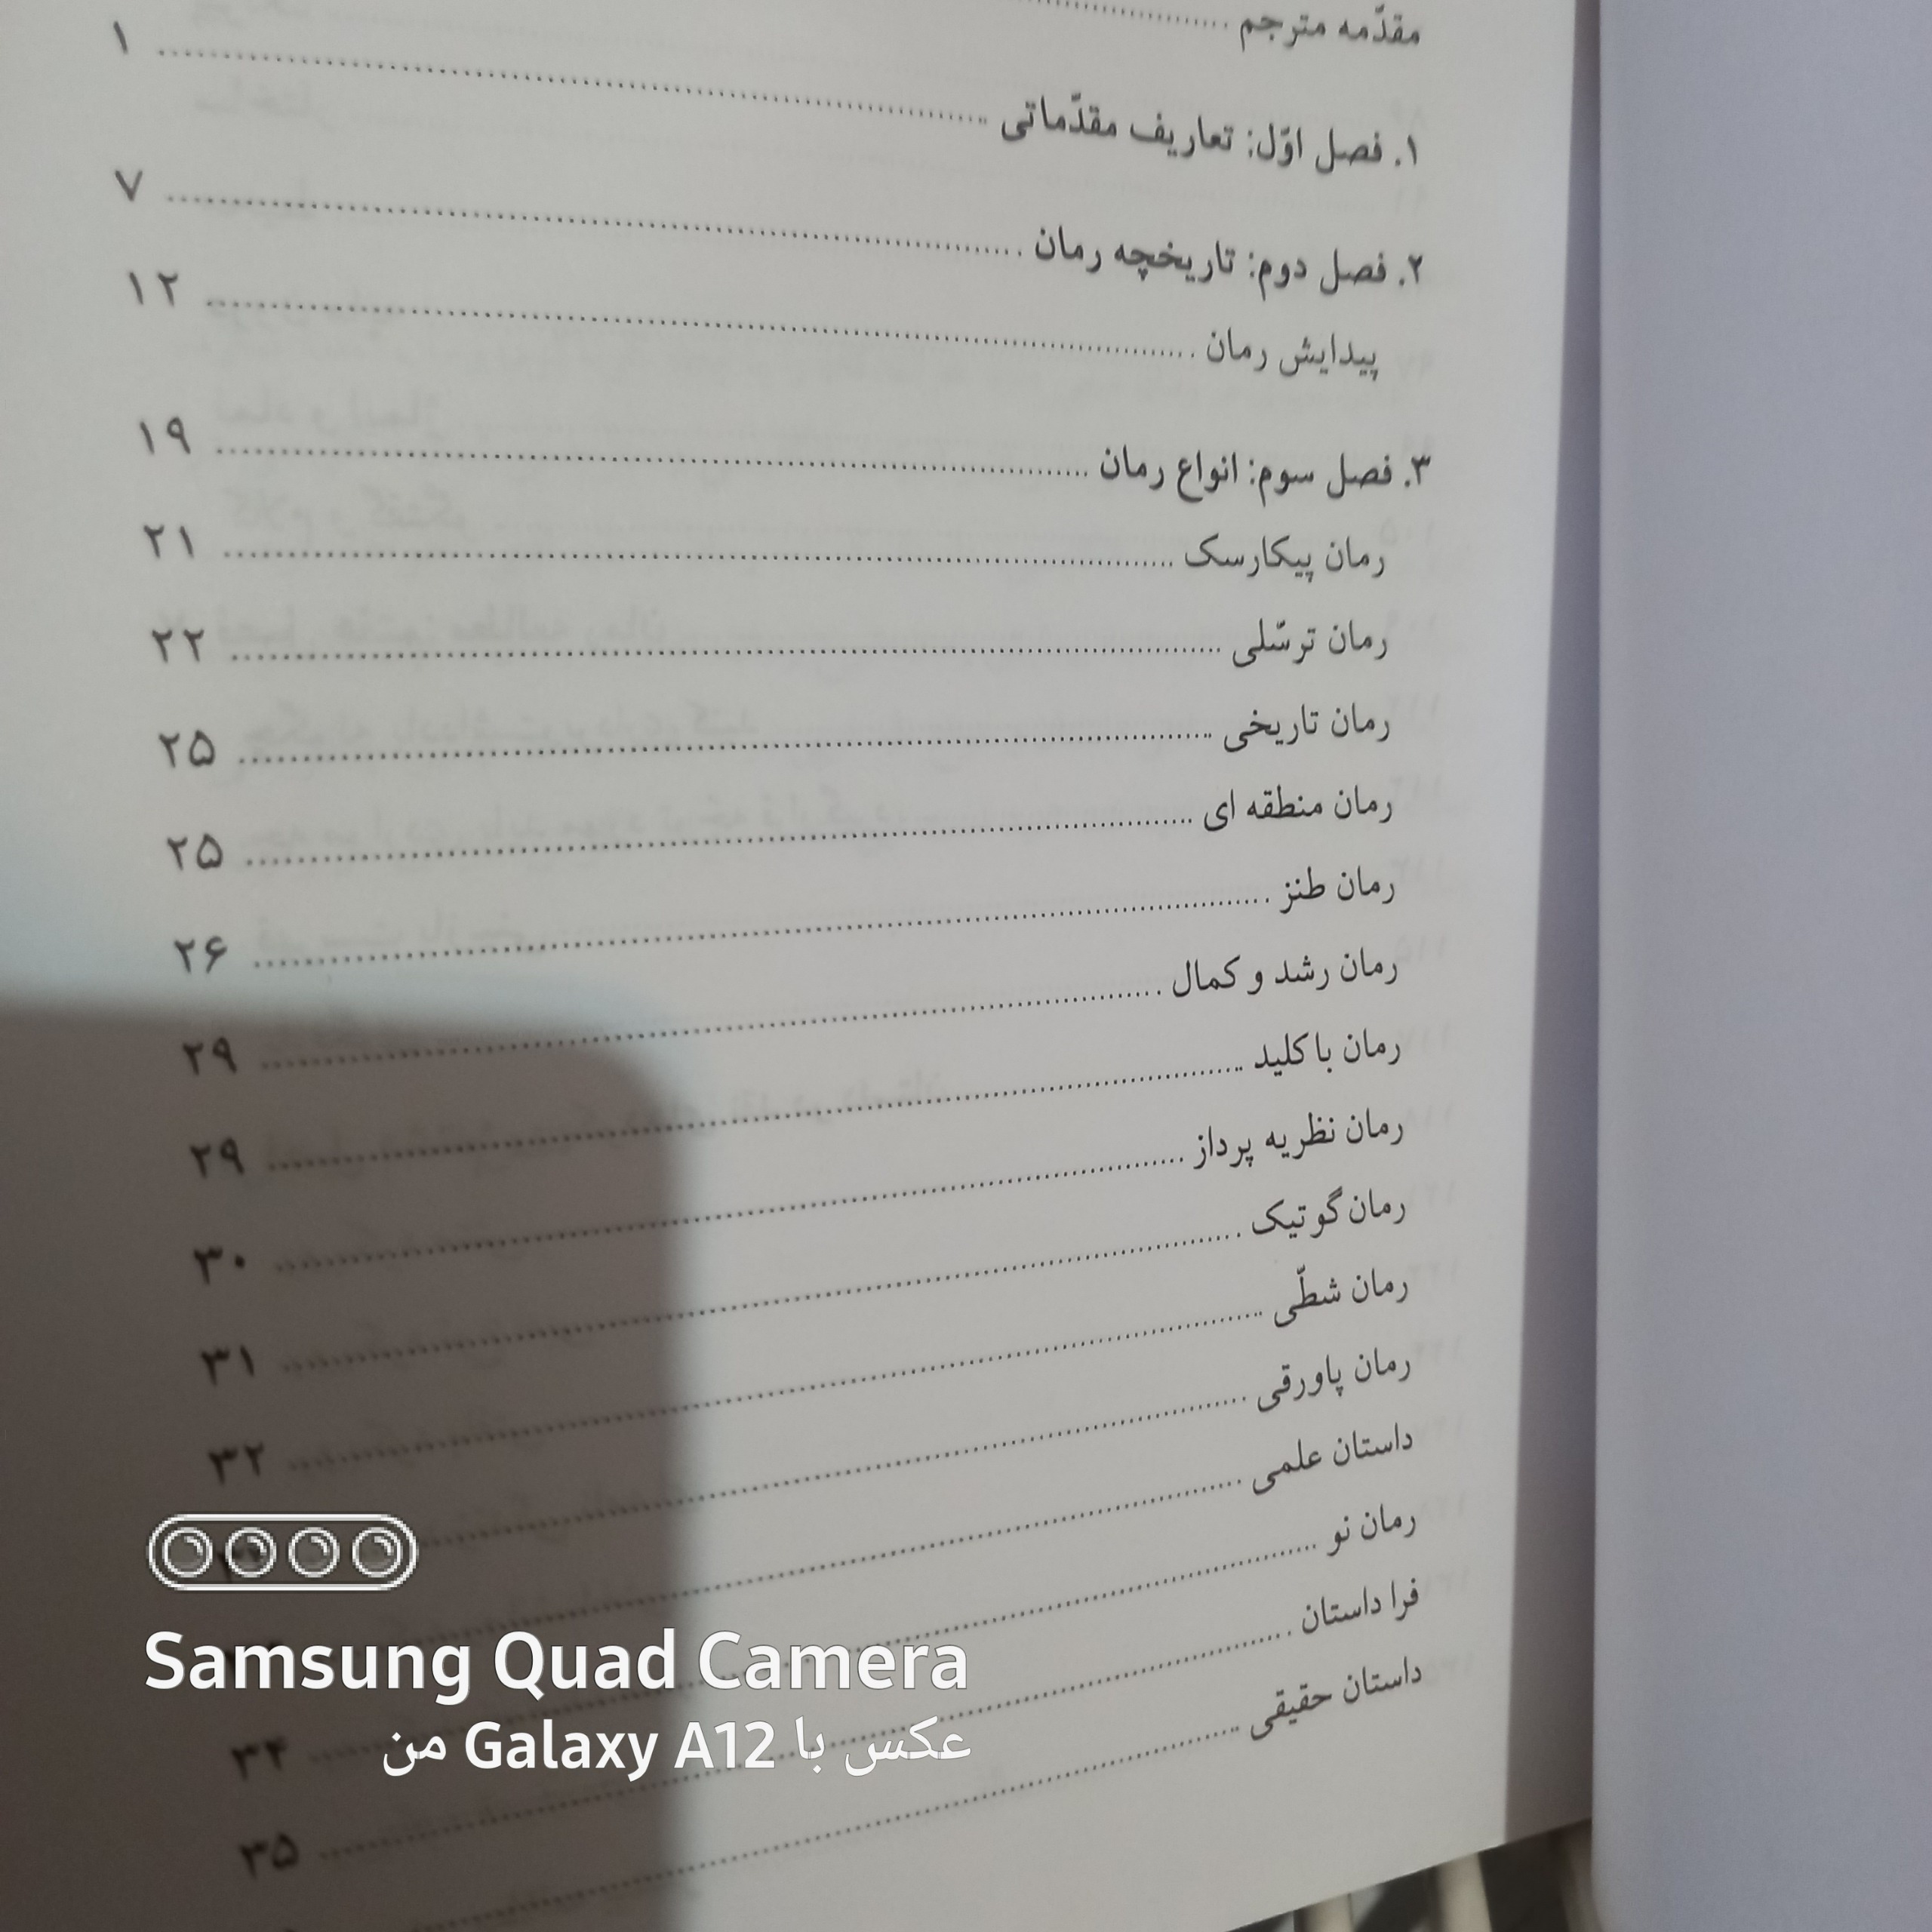 مقدّمه مترجم
۱. فصل اوّل: تعاریف مقدّماتی ........ ۱
۲. فصل دوم: تاریخچه رمان ........ ۷
پیدایش رمان ........ ۱۲
۳. فصل سوم: انواع رمان ........ ۱۹
رمان پیکارسک ........ ۲۱
رمان ترسّلی ........ ۲۲
رمان تاریخی ........ ۲۵
رمان منطقه ای ........ ۲۵
رمان طنز ........ ۲۶
رمان رشد و کمال ........ ۲۹
رمان با کلید ........ ۲۹
رمان نظریه پرداز ........ ۳۰
رمان گوتیک ........ ۳۱
رمان شطّی ........ ۳۲
رمان پاورقی
داستان علمی
رمان نو ........ ۳۴
فرا داستان ........ ۳۵
داستان حقیقی
Samsung Quad Camera
عکس با Galaxy A12 من